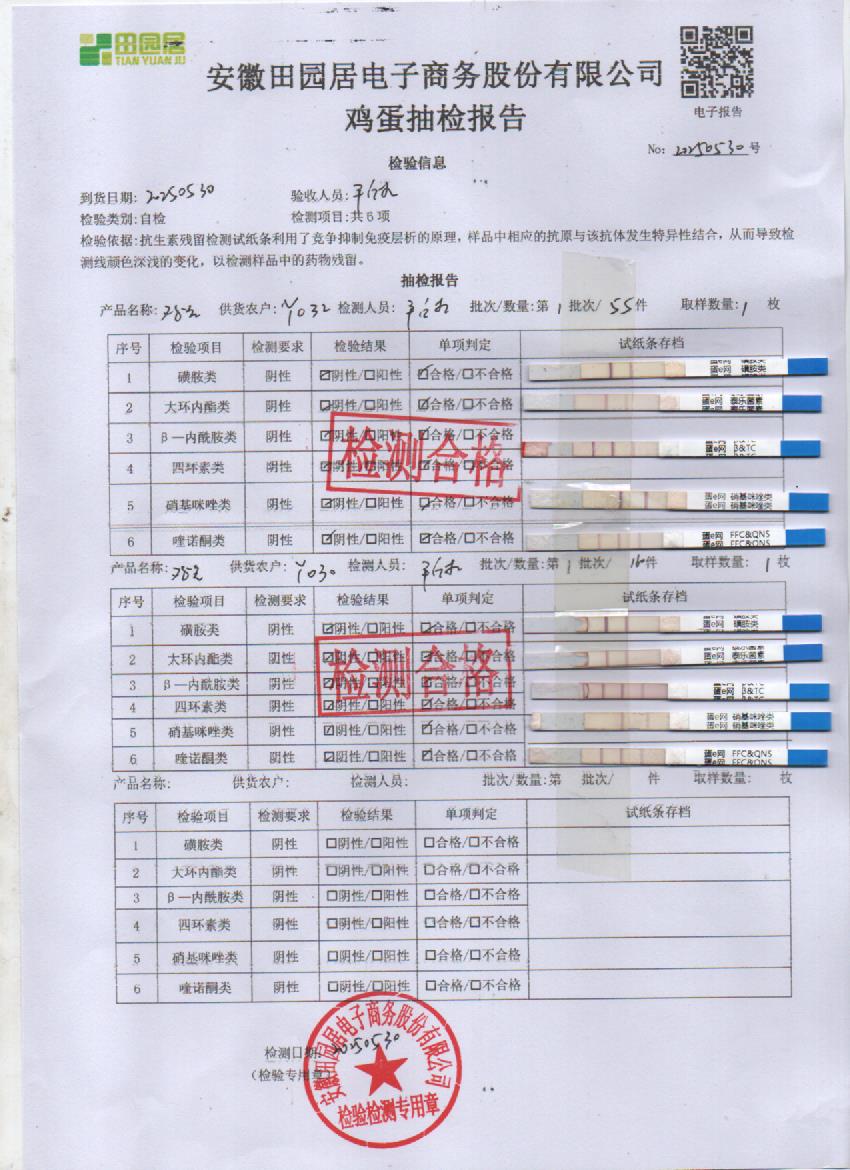 田园居
TIAN YUAN JU
安徽田园居电子商务股份有限公司
鸡蛋抽检报告
电子报告
No: 20250530 号
检验信息
到货日期: 20250530 验收人员:
检验类别:自检 检测项目:共6项
检验依据:抗生素残留检测试纸条利用了竞争抑制免疫层析的原理,样品中相应的抗原与该抗体发生特异性结合,从而导致检
测线颜色深浅的变化,以检测样品中的药物残留。
抽检报告
产品名称: 供货农户: Y032 检测人员: 批次/数量:第 1 批次/ 55 件 取样数量: 1 枚
序号 检验项目 检测要求 检验结果 单项判定 试纸条存档
1 磺胺类 阴性 ☑阴性/☐阳性 ☑合格/☐不合格 蛋e网 磺胺类
2 大环内酯类 阴性 ☑阴性/☐阳性 ☑合格/☐不合格 蛋e网 泰乐菌素
3 β—内酰胺类 阴性 ☑阴性/☐阳性 ☑合格/☐不合格 蛋e网 β&TC
4 四环素类 阴性 ☑阴性/☐阳性 ☑合格/☐不合格
检测合格
5 硝基咪唑类 阴性 ☑阴性/☐阳性 ☑合格/☐不合格 蛋e网 硝基咪唑类
6 喹诺酮类 阴性 ☑阴性/☐阳性 ☑合格/☐不合格 蛋e网 FFC&QNS
产品名称: 供货农户: Y030 检测人员: 批次/数量:第 1 批次/ 16件 取样数量: 1 枚
序号 检验项目 检测要求 检验结果 单项判定 试纸条存档
1 磺胺类 阴性 ☑阴性/☐阳性 ☑合格/☐不合格 蛋e网 磺胺类
2 大环内酯类 阴性 ☑阴性/☐阳性 ☑合格/☐不合格 蛋e网 泰乐菌素
检测合格
3 β—内酰胺类 阴性 ☑阴性/☐阳性 ☑合格/☐不合格 蛋e网 β&TC
4 四环素类 阴性 ☑阴性/☐阳性 ☑合格/☐不合格
5 硝基咪唑类 阴性 ☑阴性/☐阳性 ☑合格/☐不合格 蛋e网 硝基咪唑类
6 喹诺酮类 阴性 ☑阴性/☐阳性 ☑合格/☐不合格 蛋e网 FFC&QNS
产品名称: 供货农户: 检测人员: 批次/数量:第 批次/ 件 取样数量: 枚
序号 检验项目 检测要求 检验结果 单项判定 试纸条存档
1 磺胺类 阴性 ☐阴性/☐阳性 ☐合格/☐不合格
2 大环内酯类 阴性 ☐阴性/☐阳性 ☐合格/☐不合格
3 β—内酰胺类 阴性 ☐阴性/☐阳性 ☐合格/☐不合格
4 四环素类 阴性 ☐阴性/☐阳性 ☐合格/☐不合格
5 硝基咪唑类 阴性 ☐阴性/☐阳性 ☐合格/☐不合格
6 喹诺酮类 阴性 ☐阴性/☐阳性 ☐合格/☐不合格
检测日期: 20250530
(检验专用章)
安徽田园居电子商务股份有限公司
检验检测专用章